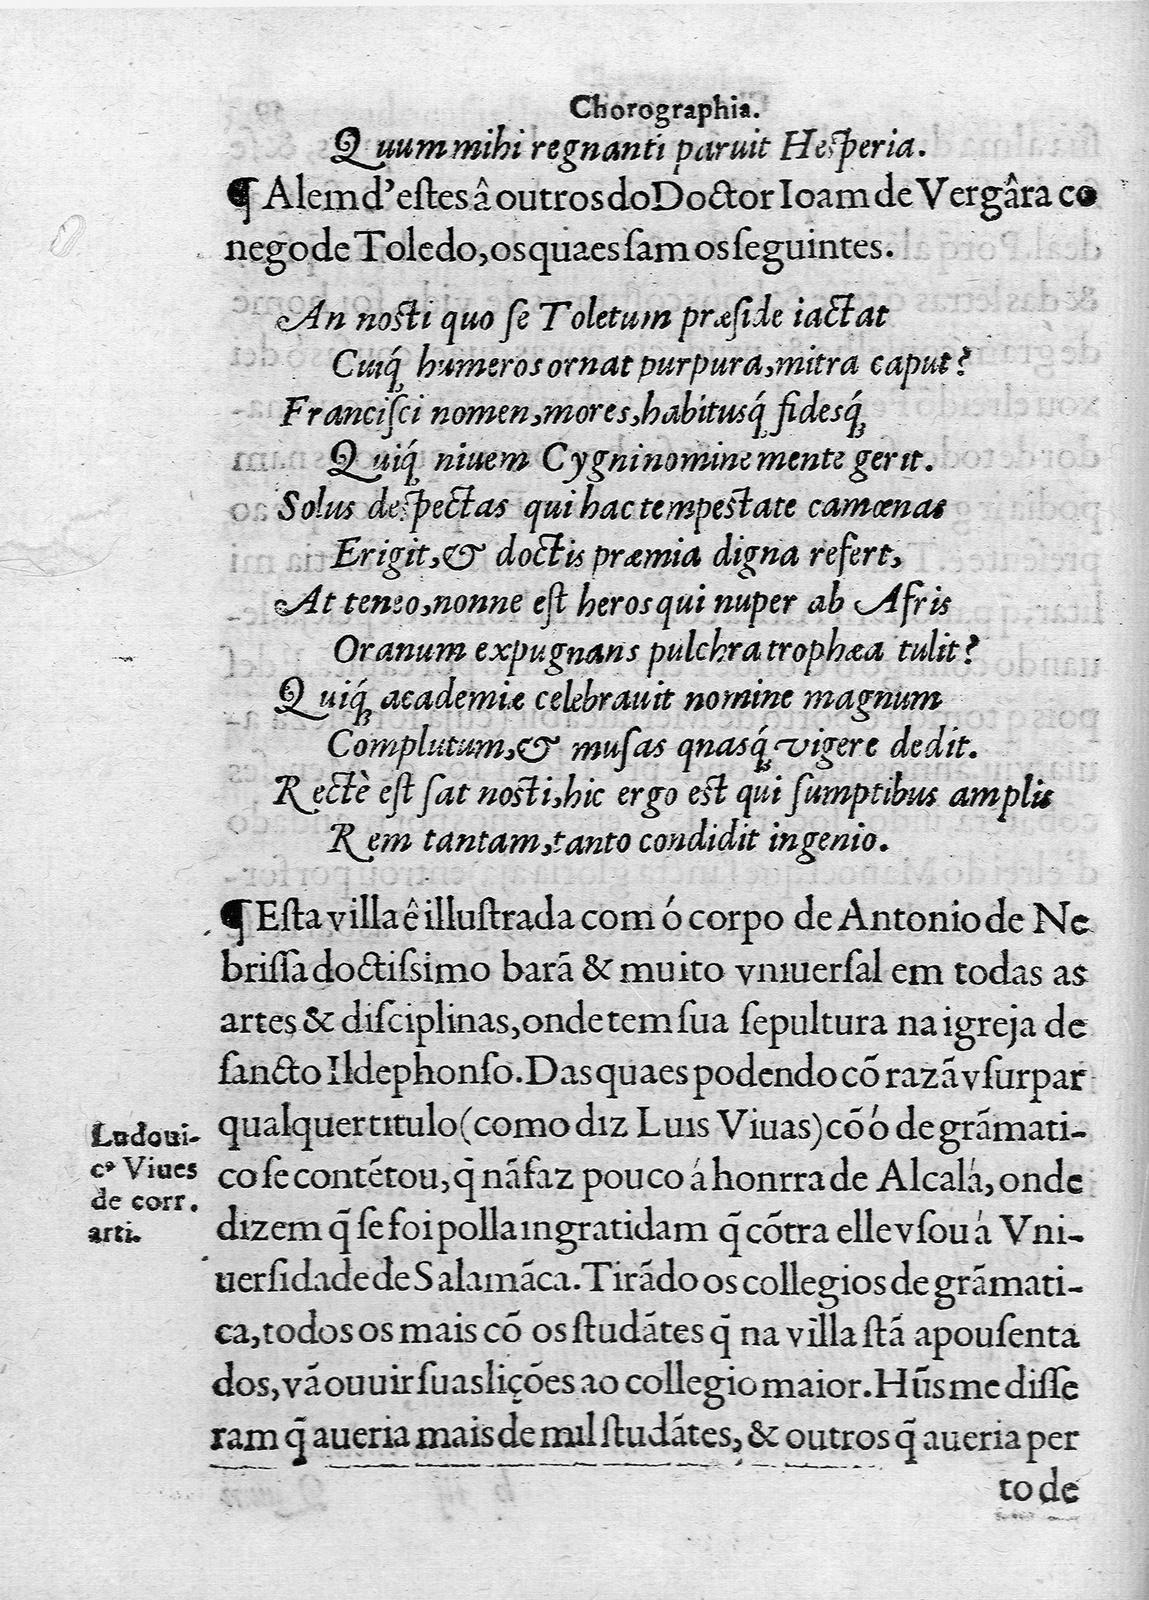 Chorographia.
Quum mihi regnanti paruit Hesperia.
¶ Alem d'estes â outros do Doctor Ioam de Vergâra co
nego de Toledo, os quaes sam os seguintes.
An nosti quo se Toletum præside iactat
Cuiq́ꝫ humeros ornat purpura, mitra caput?
Francisci nomen, mores, habitusq́ꝫ fidesq́ꝫ
Quiq́ꝫ niuem Cygni nomine mente gerit.
Solus despectas qui hac tempestate camœnas
Erigit, & doctis præmia digna refert,
At teneo, nonne est heros qui nuper ab Afris
Oranum expugnans pulchra trophæa tulit?
Quiq́ꝫ academiæ celebrauit nomine magnum
Complutum, & musas qnasq́ꝫ vigere dedit.
Rectè est sat nosti, hic ergo est qui sumptibus amplis
Rem tantam, tanto condidit ingenio.
¶ Esta villa ê illustrada com ó corpo de Antonio de Ne
brissa doctissimo barã & muito vniuersal em todas as
artes & disciplinas, onde tem sua sepultura na igreja de
sancto Ildephonso. Das quaes podendo cõ razã vsurpar
qualquer titulo (como diz Luis Viuas) cõ ó de grãmati-
co se contẽtou, q̃ nã faz pouco á honrra de Alcalá, onde
dizem q̃ se foi polla ingratidam q̃ cõtra elle vsou á Vni-
uersidade de Salamãca. Tirãdo os collegios de grãmati-
ca, todos os mais cõ os studãtes q̃ na villa stã apousenta
dos, vã ouuir suas lições ao collegio maior. Hũs me disse
ram q̃ aueria mais de mil studãtes, & outros q̃ aueria per
to de
Ludoui-
cꝰ Viues
de corr.
arti.